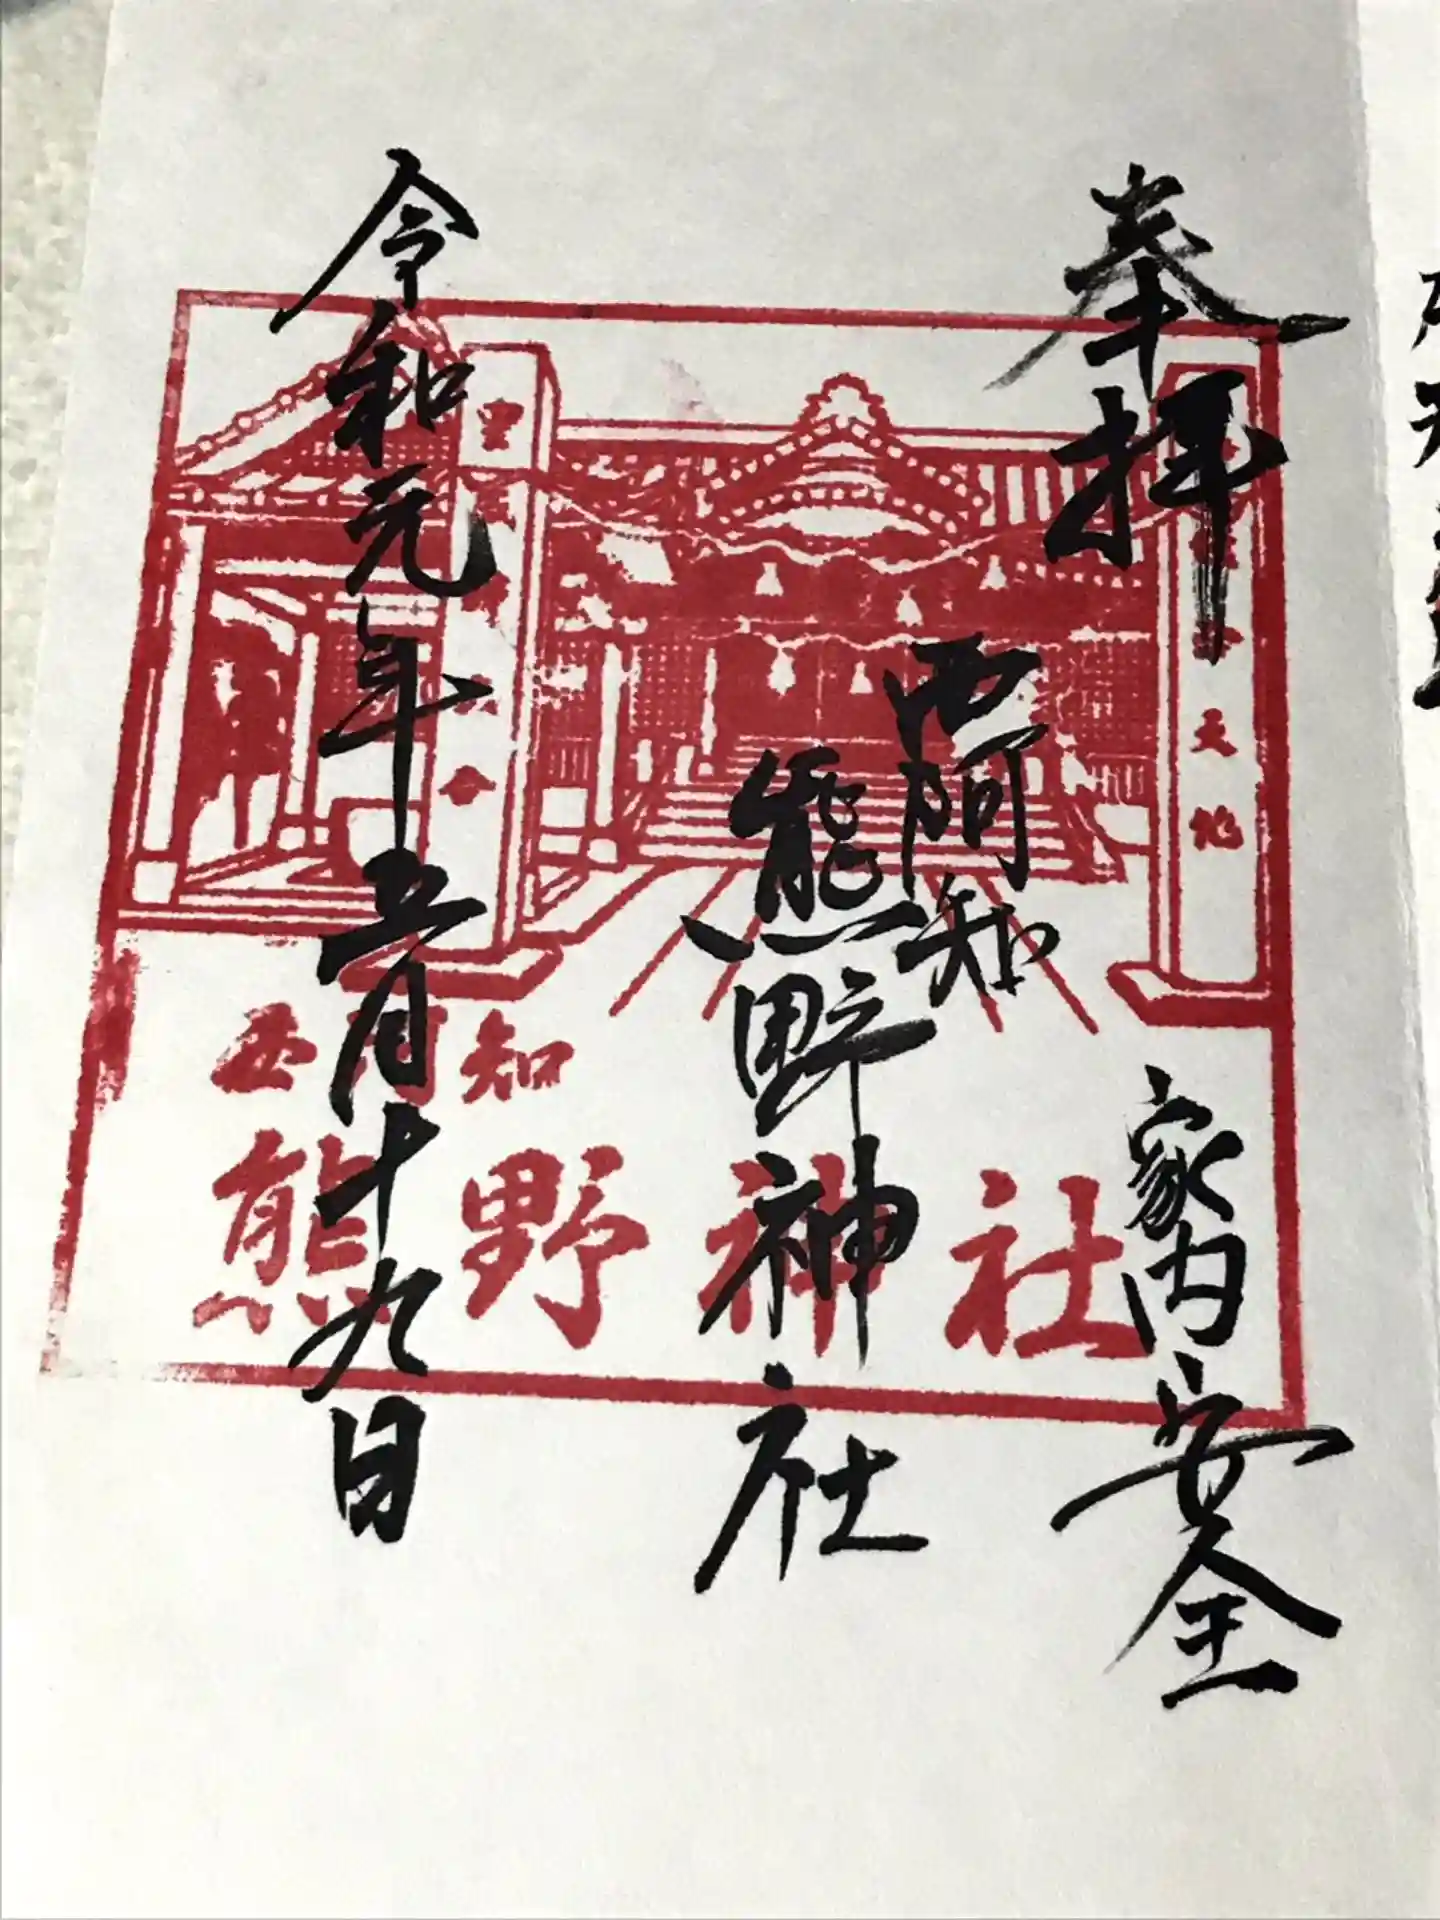 奉拝
家内安全
西阿知
熊野神社
令和元年五月十九日
西阿知
熊野神社
天地